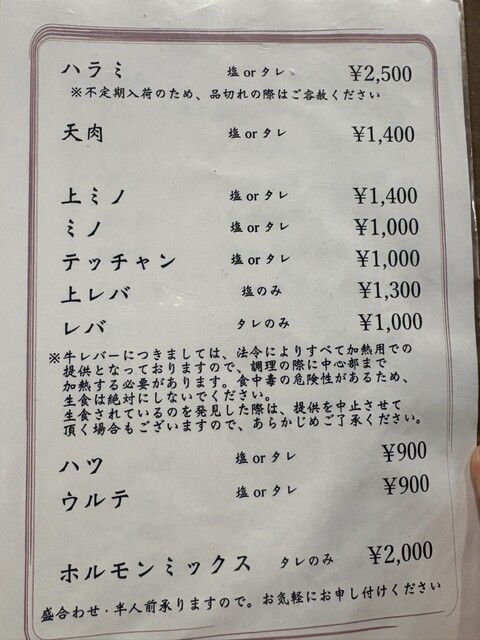 ハラミ 塩 or タレ ¥2,500
※不定期入荷のため、品切れの際はご容赦ください
天肉 塩 or タレ ¥1,400
上ミノ 塩 or タレ ¥1,400
ミノ 塩 or タレ ¥1,000
テッチャン 塩 or タレ ¥1,000
上レバ 塩のみ ¥1,300
レバ タレのみ ¥1,000
※牛レバーにつきましては、法令によりすべて加熱用での
提供となっておりますので、調理の際に中心部まで
加熱する必要があります。食中毒の危険性があるため、
生食は絶対にしないでください。
生食されているのを発見した際は、提供を中止させて
頂く場合もございますので、あらかじめご了承ください。
ハツ 塩 or タレ ¥900
ウルテ 塩 or タレ ¥900
ホルモンミックス タレのみ ¥2,000
盛合わせ・半人前承りますので。お気軽にお申し付けください